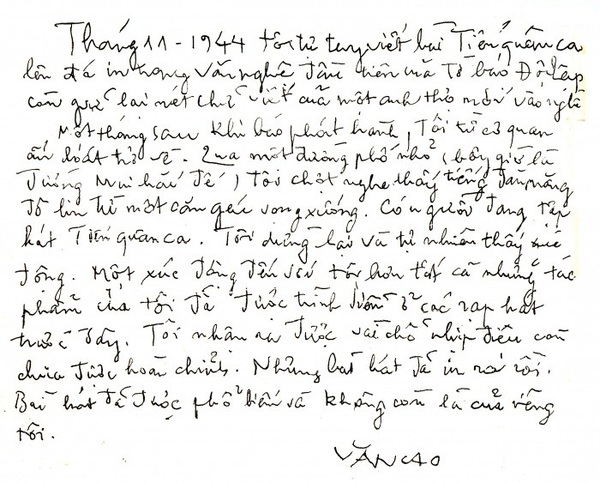 Tháng 11 - 1944 tôi tự tay viết bài Tiến quân ca
lên đá in trang văn nghệ đầu tiên của tờ báo Độc Lập
còn giữ lại nét chữ viết của một anh thợ mới vào nghề
Một tháng sau khi báo phát hành, Tôi từ cơ quan
ấn loát trở về. Qua một đường phố nhỏ (bây giờ là
đường Mai hắc Đế) tôi chợt nghe thấy tiếng đàn măng
đô lin từ một căn gác vọng xuống. Có người đang tập
hát Tiến quân ca. Tôi dừng lại và tự nhiên thấy xúc
động. Một xúc động đến với tôi hơn tất cả những tác
phẩm của tôi đã được trình diễn ở các rạp hát
trước đây. Tôi nhận ra được vài chỗ nhịp điệu còn
chưa được hoàn chỉnh. Nhưng bài hát đã in ra rồi.
Bài hát đã được phổ biến và không còn là của riêng
tôi.
VĂN CAO